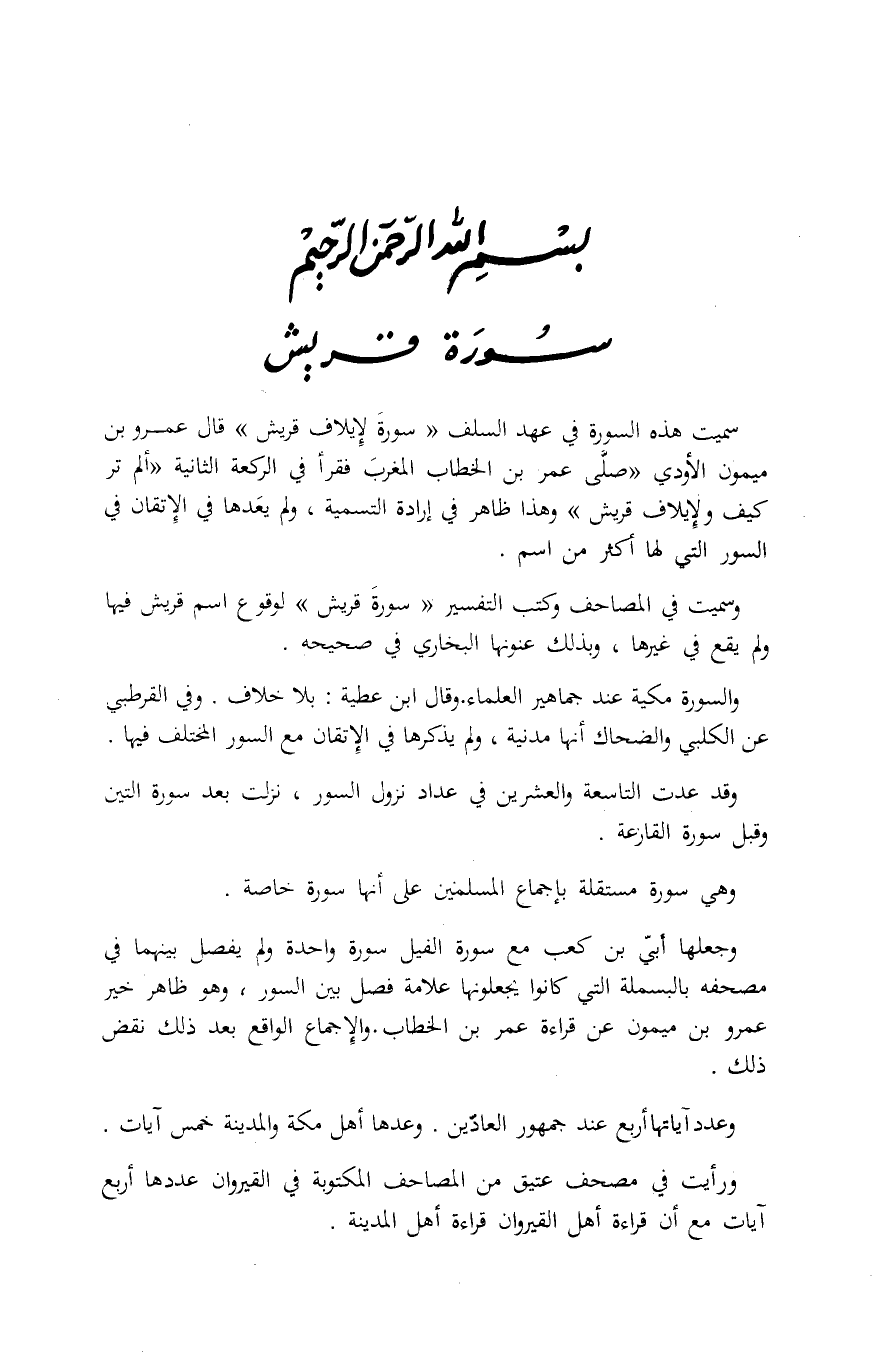 بِسْمِ اللهِ الرَّحْمَنِ الرَّحِيمِ
سُورَة قريش
سميت هذه السورة في عهد السلف « سورةَ لِإيلاف قريش » قال عمرو بن
ميمون الأودي «صلَّى عمر بن الخطاب المغربَ فقرأ في الركعة الثانية «ألم تر
كيف ولِإيلاف قريش » وهذا ظاهر في إرادة التسمية ، ولم يعَدها في الإتقان في
السور التي لها أكثر من اسم .
وسميت في المصاحف وكتب التفسير « سورةَ قريش » لوقوع اسم قريش فيها
ولم يقع في غيرها ، وبذلك عنونها البخاري في صحيحه .
والسورة مكية عند جماهير العلماء.وقال ابن عطية : بلا خلاف . وفي القرطبي
عن الكلبي والضحاك أنها مدنية ، ولم يذكرها في الإتقان مع السور المختلف فيها .
وقد عدت التاسعة والعشرين في عداد نزول السور ، نزلت بعد سورة التين
وقبل سورة القارعة .
وهي سورة مستقلة بإجماع المسلمين على أنها سورة خاصة .
وجعلها أبيّ بن كعب مع سورة الفيل سورة واحدة ولم يفصل بينهما في
مصحفه بالبسملة التي كانوا يجعلونها علامة فصل بين السور ، وهو ظاهر خبر
عمرو بن ميمون عن قراءة عمر بن الخطاب.والإجماع الواقع بعد ذلك نقض
ذلك .
وعدد آياتها أربع عند جمهور العادّين . وعدها أهل مكة والمدينة خمس آيات .
ورأيت في مصحف عتيق من المصاحف المكتوبة في القيروان عددها أربع
آيات مع أن قراءة أهل القيروان قراءة أهل المدينة .